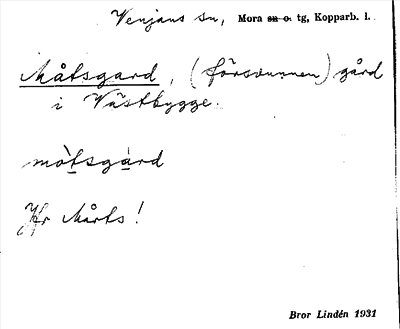 Venjans sn, Mora sn o. tg, Kopparb. l.
Måtsgard, (försvunnen) gård
i Västbygge.
mòtsgàrd
Jfr Mårts!
Bror Lindén 1931